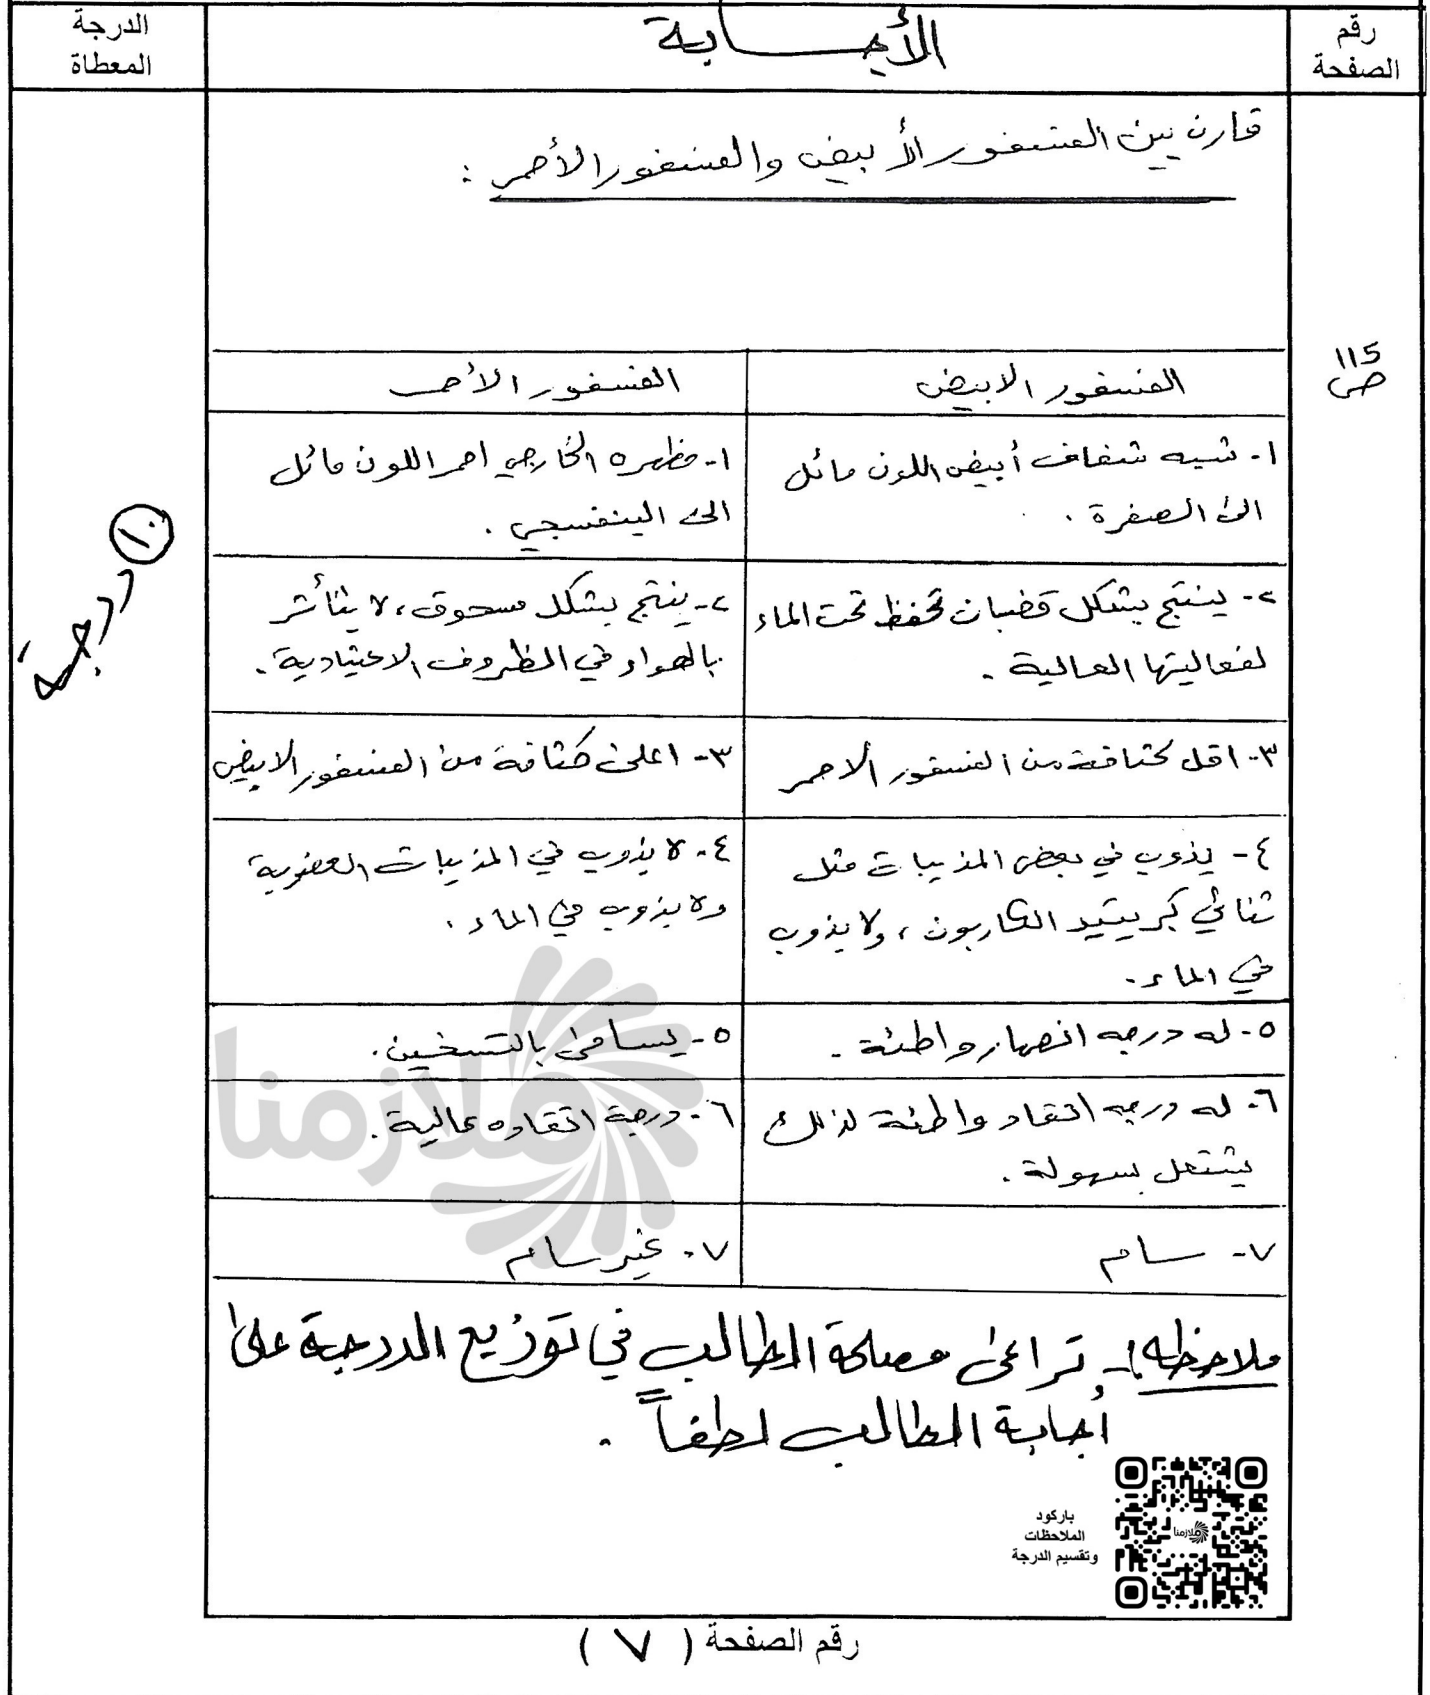 رقم الصفحة
الأجـــابة
الدرجة المعطاة
قارن بين الفسفور الأبيض والفسفور الأحمر :
ص 115
الفسفور الابيض
الفسفور الأحمر
١- شبه شفاف أبيض اللون مائل
الى الصفرة .
١- مظهره الخارجي احمر اللون مائل
الى البنفسجي .
٢- ينتج بشكل قضبان تحفظ تحت الماء
لفعاليتها العالية .
٢- ينتج بشكل مسحوق ، لا يتأثر
بالهواء في الظروف الاعتيادية .
١٠ درجة
٣- اقل كثافة من الفسفور الاحمر
٣- اعلى كثافة من الفسفور الابيض
٤- يذوب في بعض المذيبات مثل
ثنائي كبريتيد الكاربون ، ولا يذوب
في الماء .
٤- لا يذوب في المذيبات العضوية
ولا يذوب في الماء .
٥- له درجه انصهار واطئة .
٥- يسامى بالتسخين .
٦- له درجه اتقاد واطئة لذلك
يشتعل بسهولة .
٦- درجة اتقاده عالية .
٧- ســام
٧- غير ســام
ملازمنا
ملاحظه :- تراعى مصلحة الطالب في توزيع الدرجة على
أجابة الطالب لطفاً .
باركود
الملاحظات
وتقسيم الدرجة
ملازمنا
رقم الصفحة ( ٧ )